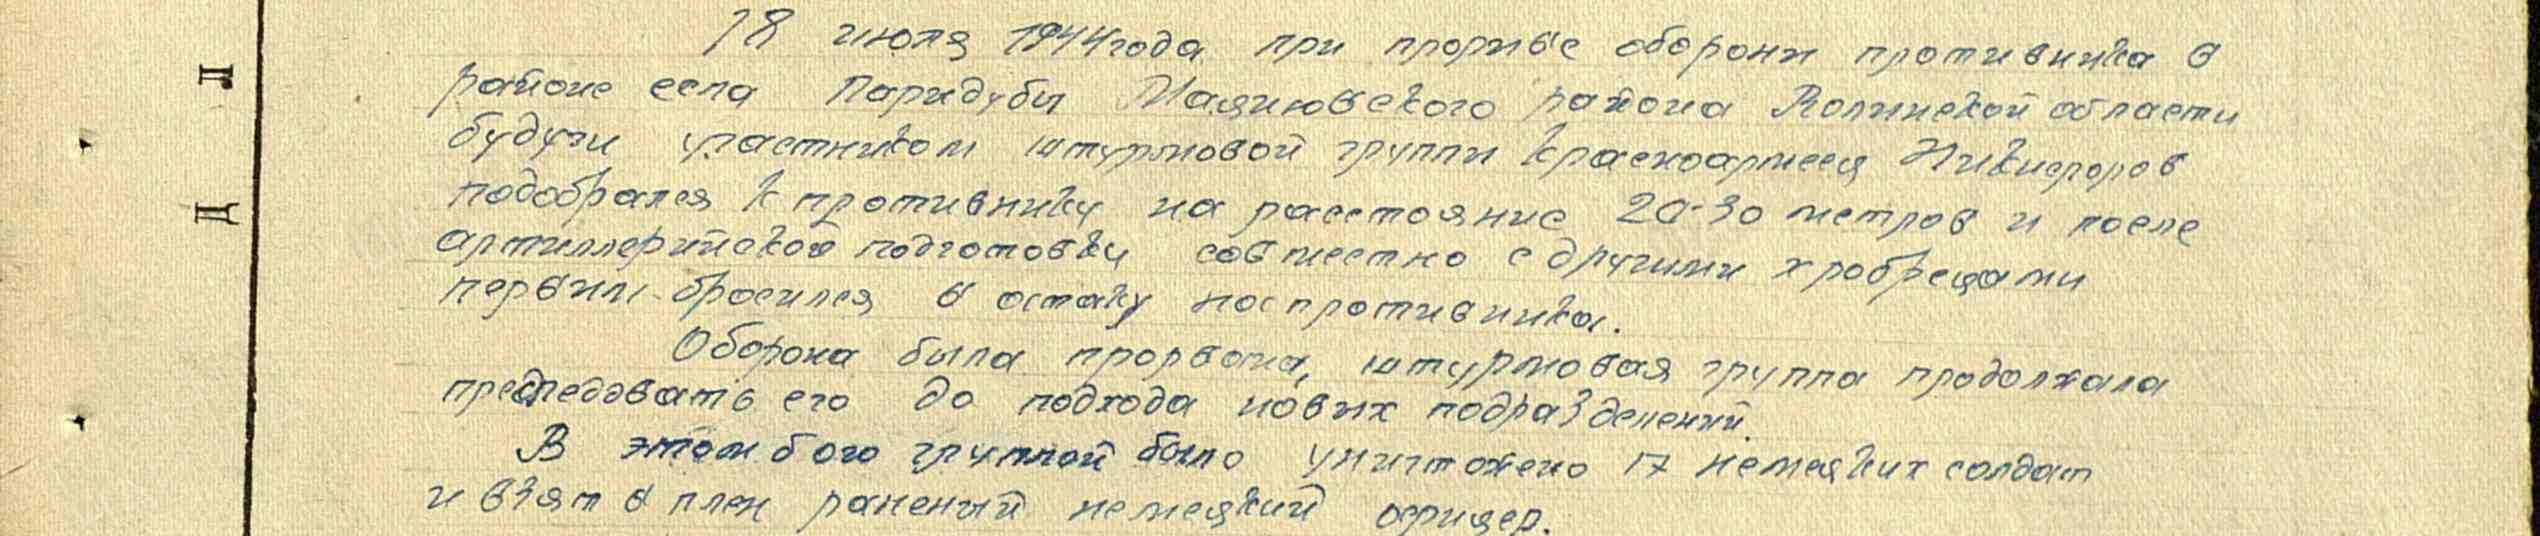 18 июля 1944 года при прорыве обороны противника в
районе села Паридубы Мациювского района Волынской области
будучи участником штурмовой группы красноармеец Никифоров
подобрался к противнику на расстояние 20-30 метров и после
артиллерийской подготовки совместно с другими храбрецами
первым бросился в отаку на противника.
Оборона была прорвана, штурмовая группа продолжала
преследовать его до подхода новых подразделений.
В этом бою группой было уничтожено 17 немецких солдат
и взят в плен раненый немецкий офицер.
Л
Д